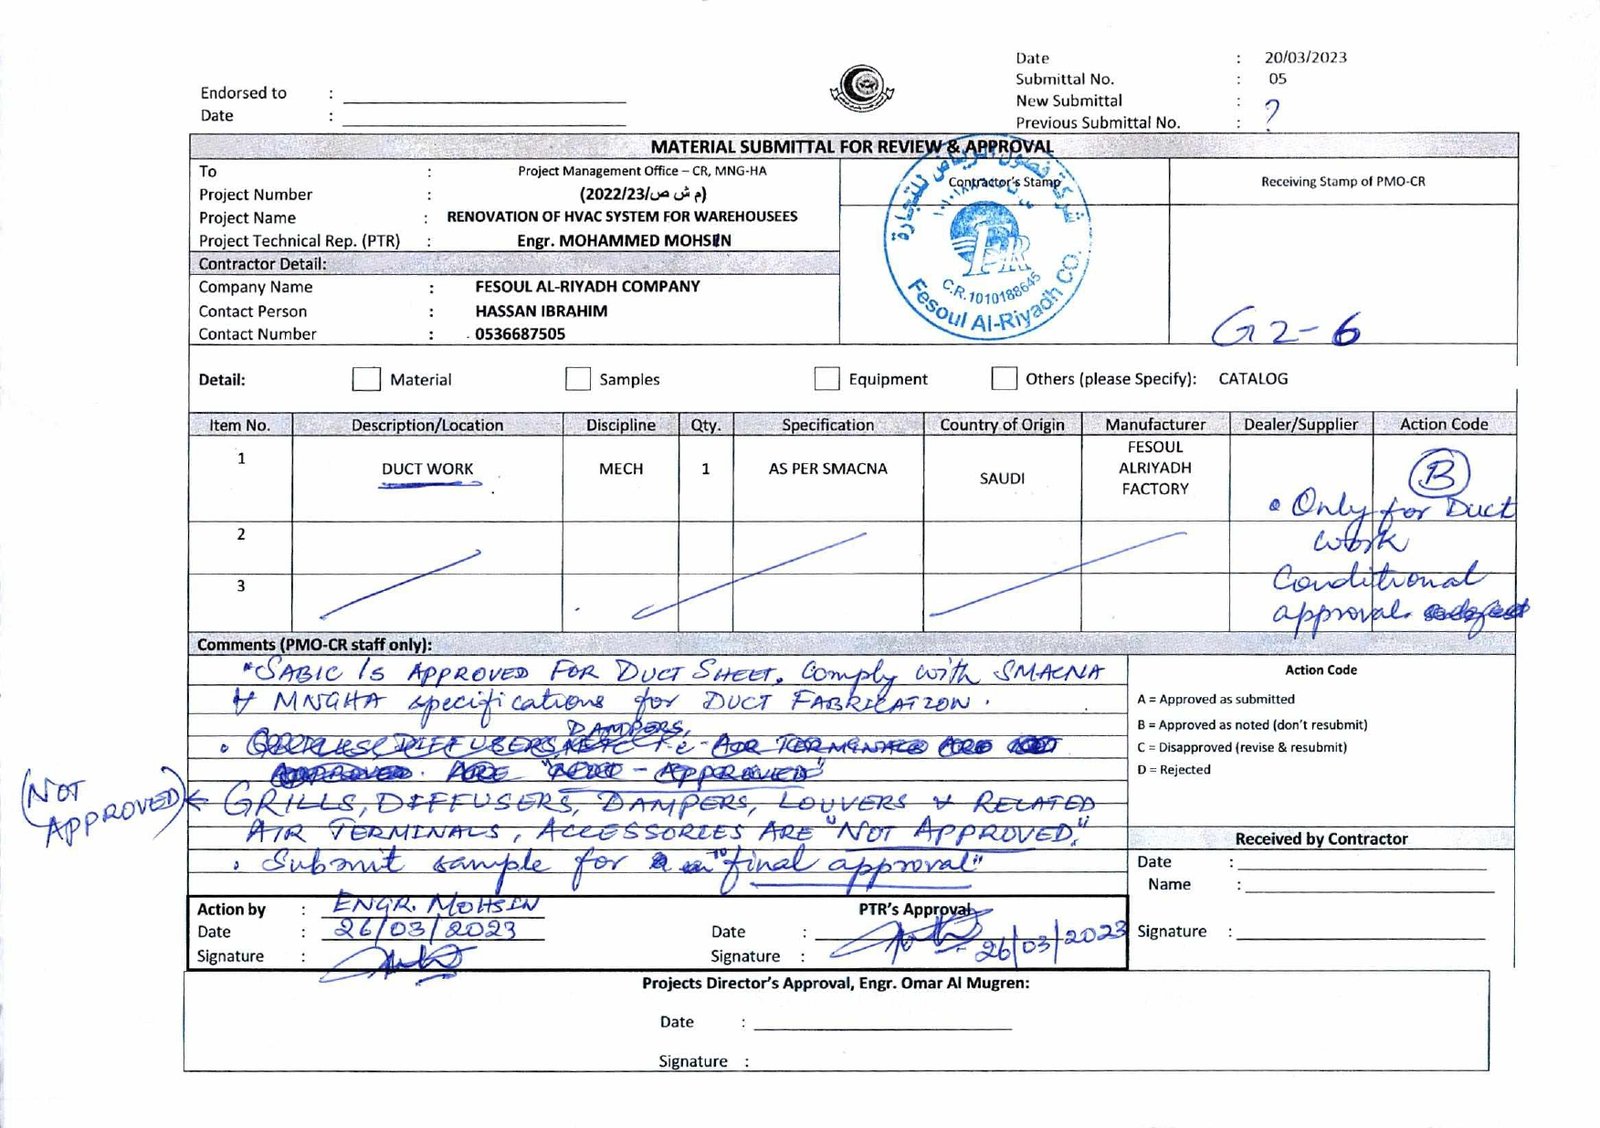 Date : 20/03/2023
Submittal No. : 05
New Submittal : ?
Previous Submittal No. :
Endorsed to :
Date :
MATERIAL SUBMITTAL FOR REVIEW & APPROVAL
To : Project Management Office – CR, MNG-HA
Project Number : (2022/23/م ش ص)
Project Name : RENOVATION OF HVAC SYSTEM FOR WAREHOUSEES
Project Technical Rep. (PTR) : Engr. MOHAMMED MOHSIN
Contractor's Stamp
Receiving Stamp of PMO-CR
شركة فصول الرياض للتجارة
FR
C.R.1010188645
Fesoul Al-Riyadh CO.
G2-6
Contractor Detail:
Company Name : FESOUL AL-RIYADH COMPANY
Contact Person : HASSAN IBRAHIM
Contact Number : 0536687505
Detail: Material Samples Equipment Others (please Specify): CATALOG
Item No. Description/Location Discipline Qty. Specification Country of Origin Manufacturer Dealer/Supplier Action Code
1 DUCT WORK MECH 1 AS PER SMACNA SAUDI FESOUL ALRIYADH FACTORY B
• Only for Duct
work
Conditional
approval
2
3
Comments (PMO-CR staff only):
*SABIC IS APPROVED FOR DUCT SHEET. Comply with SMACNA
& MNGHA specifications for DUCT FABRICATION.
DAMPERS,
(NOT APPROVED) ← GRILLS, DIFFUSERS, DAMPERS, LOUVERS & RELATED
AIR TERMINALS, ACCESSORIES ARE "NOT APPROVED."
• Submit sample for "final approval"
Action Code
A = Approved as submitted
B = Approved as noted (don't resubmit)
C = Disapproved (revise & resubmit)
D = Rejected
Received by Contractor
Date :
Name :
Signature :
Action by : ENGR. MOHSIN
Date : 26/03/2023
Signature :
PTR's Approval
Date : 26/03/2023
Signature :
Projects Director's Approval, Engr. Omar Al Mugren:
Date :
Signature :